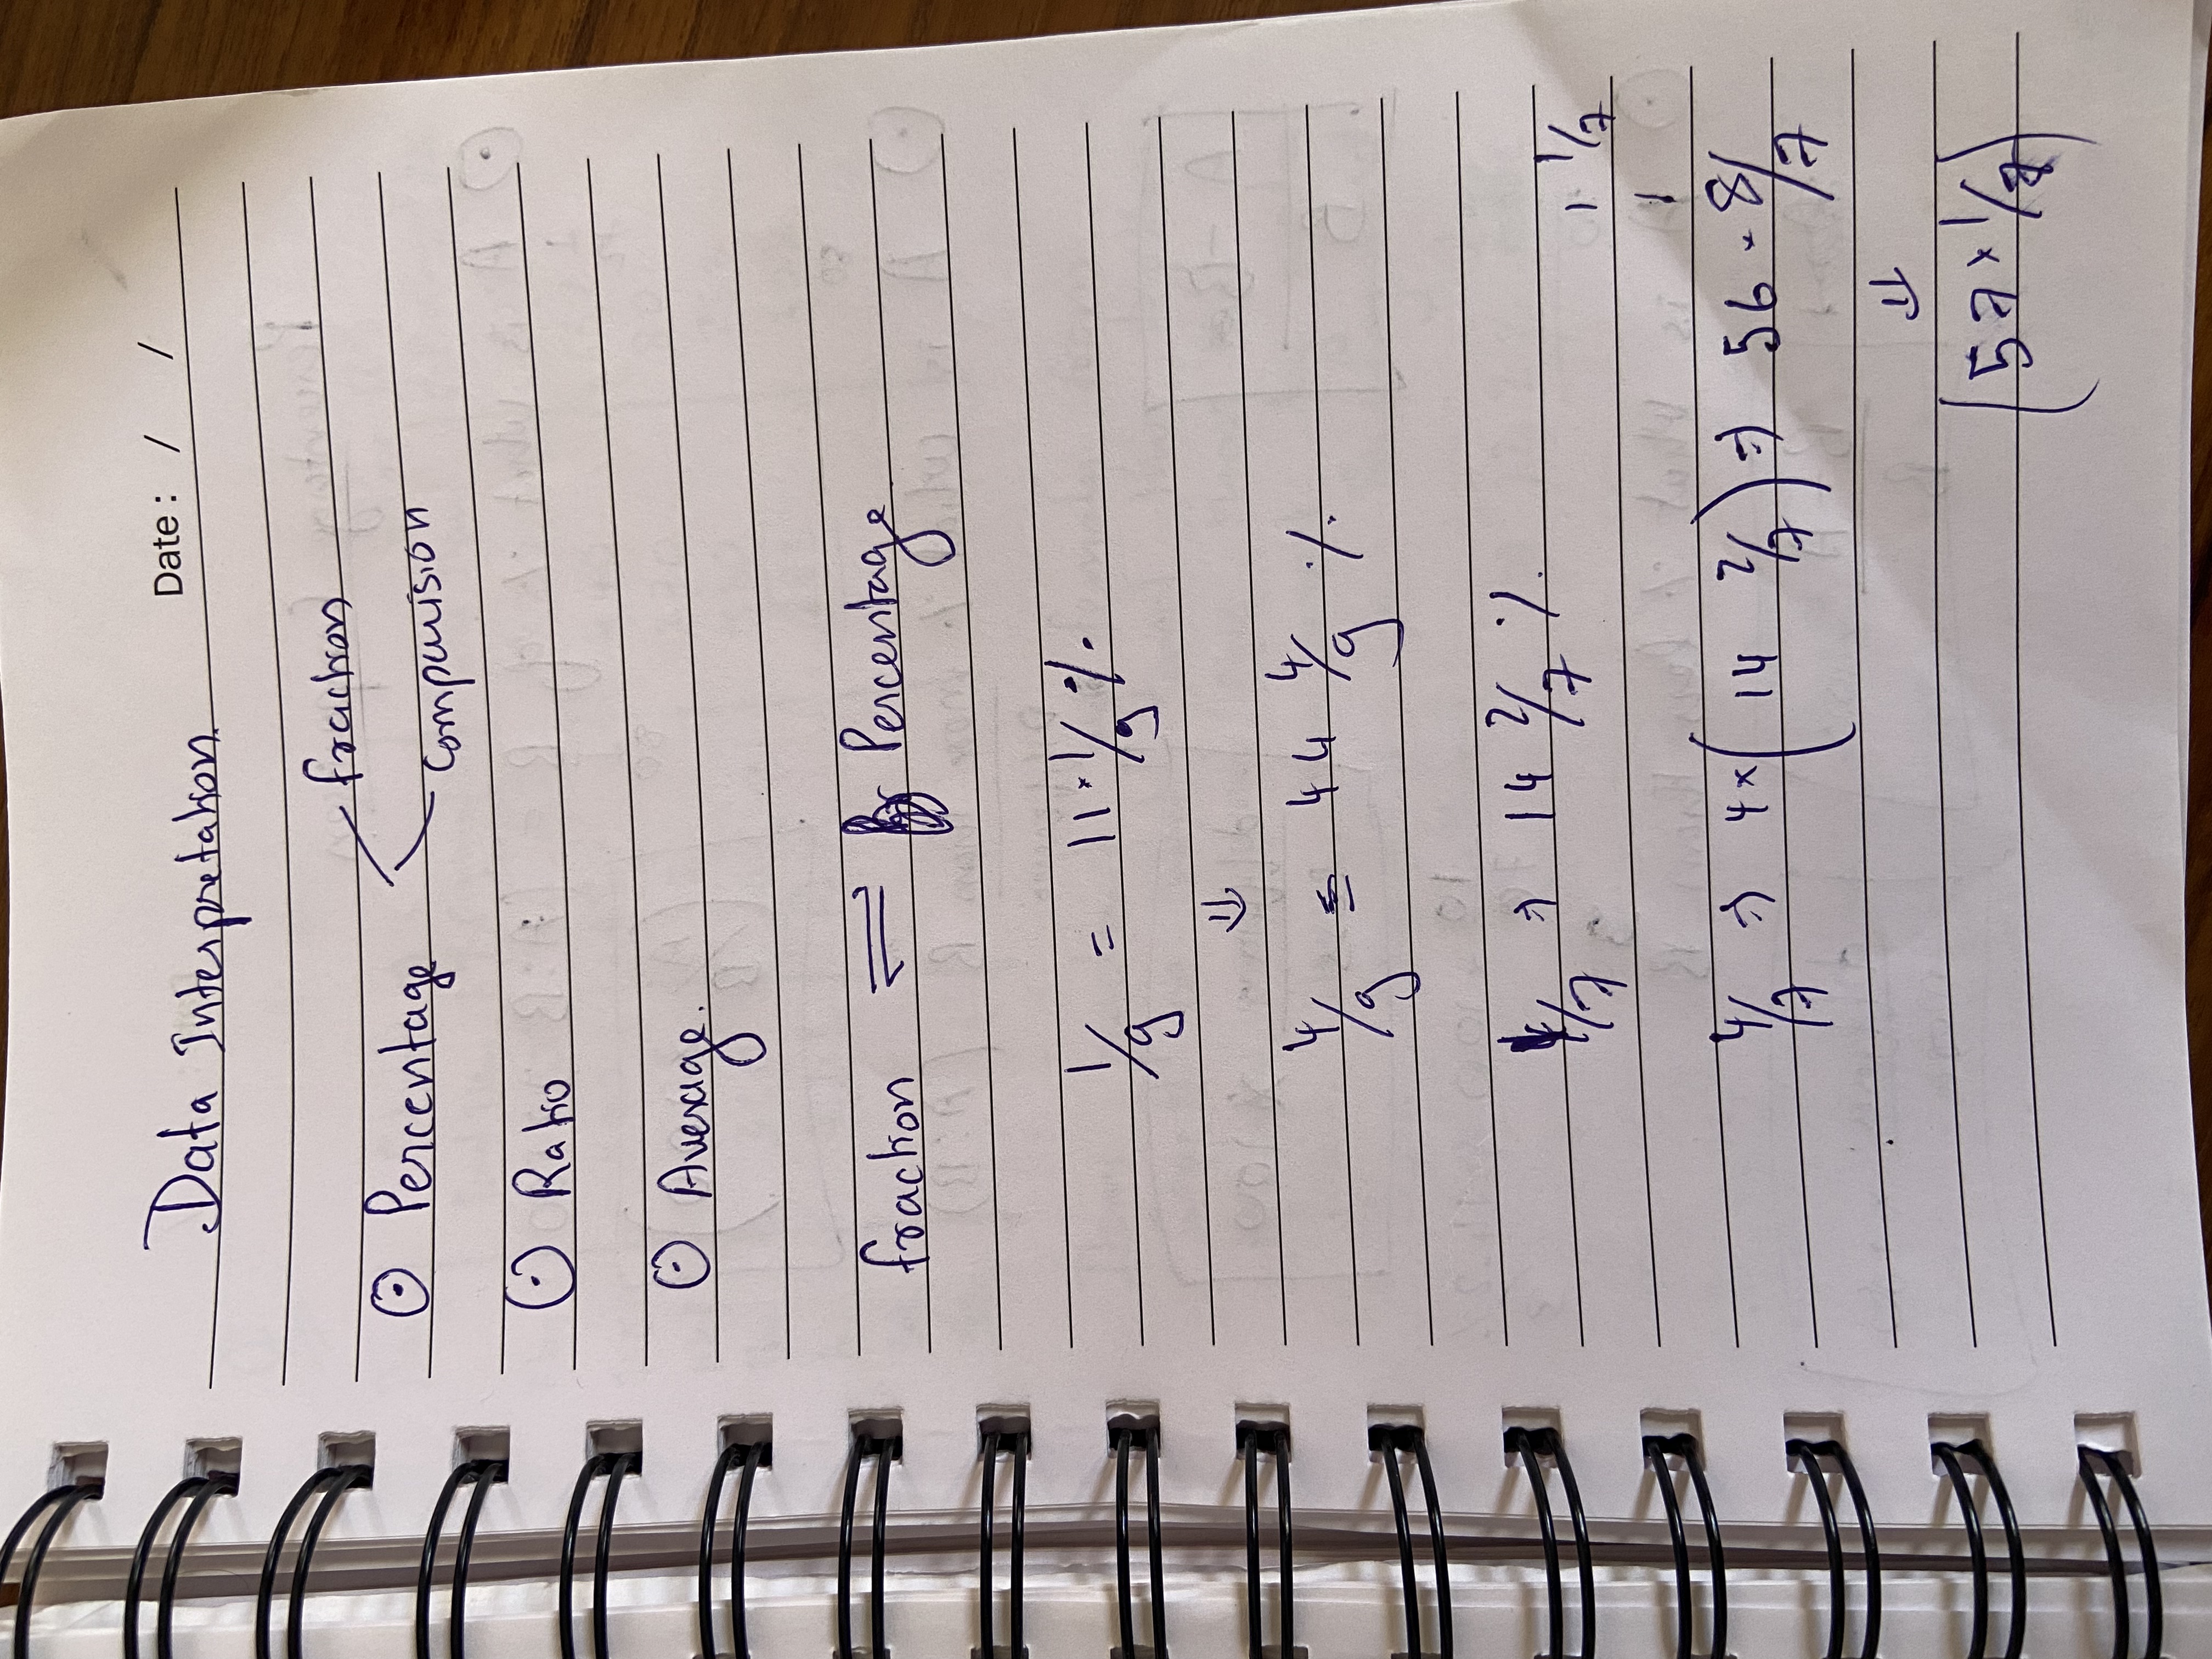 Data Interpretation. Date : / /
fraction
⊙ Percentage
comparision
⊙ Ratio
⊙ Average.
fraction ⇌ Percentage
1/9 = 11 · 1/9 %
⇓
4/9 = 44 4/9 %
1/7 ⇒ 14 2/7 %
1 1/7
1
4/7 ⇒ 4 × (14 2/7) ⇒ 56 · 8/7
⇓
(57 × 1/7)